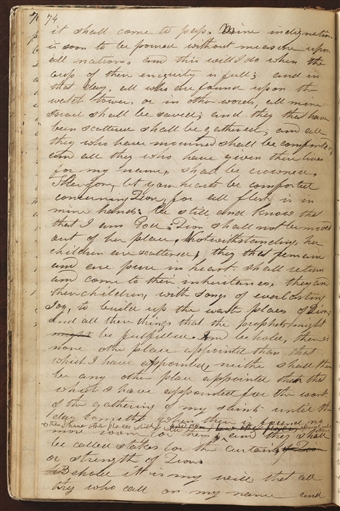 74
it shall come to pass. Mine indignation
is soon to be poured without measure upon
all nations, and this will I do when the
cup of their iniquity is full; and in
that day, all who are found upon the
watch tower, or in other words, all mine
Israel shall be saved; and they that have
been scattered shall be gathered; and all
they who have mourned shall be comforted;
and all they who have given their lives
for my name, shall be crowned.
Therefore, let your hearts be comforted
concerning Zion, for all flesh is in
mine hands: be still and know the
that I am God. Zion shall not be moved
out of her place, Notwithstanding her
children are scattered, they that remain
and are pure in heart shall return
and come to their inheritances, they and
their children, with songs of everlasting
Joy, to build up the waste places of Zion;
And all these things that the prophets might
be fulfilled. And behold, there is
none other place appointed than that
which I have appointed, neither shall there
be any other place appointed than that
which I have appointed for the work
of the gathering of my saints until the
day cometh when there is found no
more room for them; and
they shall
be called stakes for the curtains
or strength of Zion.
Behold it is my will that all
they who call on my name and